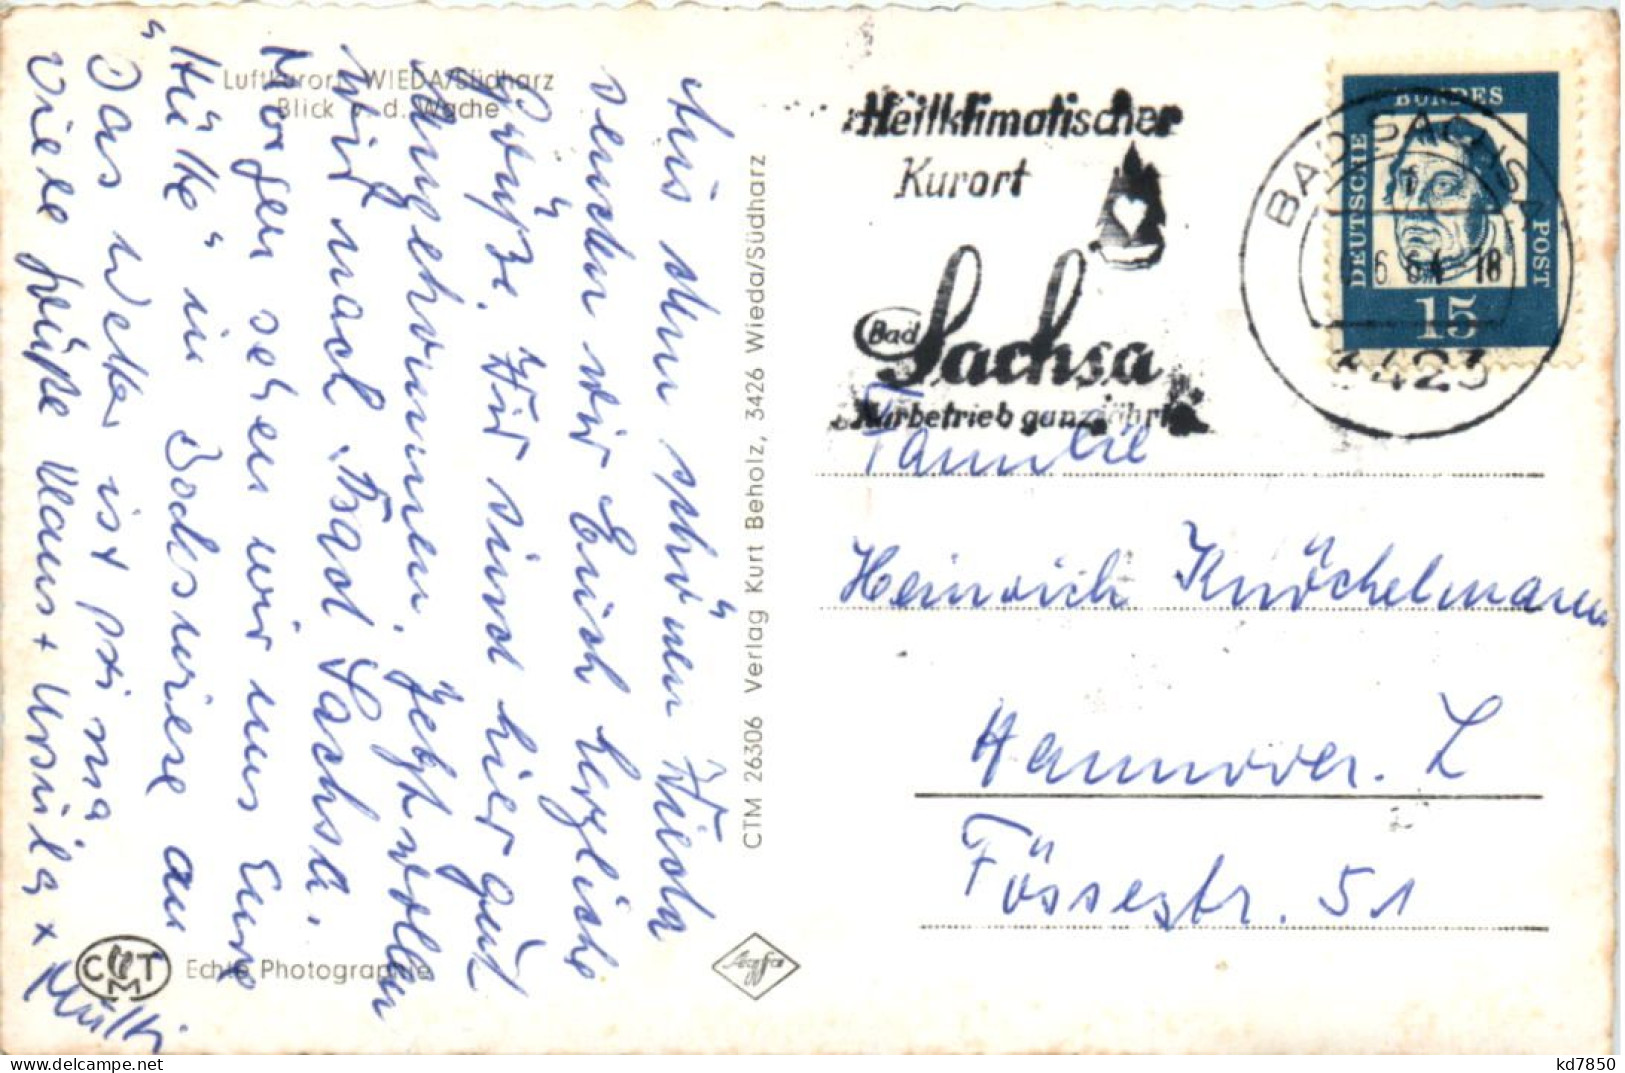 Luftkurort WIEDA/Südharz
Blick v. d. Wache
Aus dem schönen Wieda
senden wir Euch herzliche
Grüße. Wir sind hier gut
angekommen. Jetzt wollen
wir nach Bad Sachsa.
Morgen sehen wir uns Eure
"Hütte" in Bockswiese an
Das Wetter ist prima
Viele Grüße Klaus + Ursula +
CTM
Echte Photographie
CTM 26306 Verlag Kurt Beholz, 3426 Wieda/Südharz
Agfa
Heilklimatischer
Kurort
Bad Sachsa
Kurbetrieb ganzjährig
BAD SACHSA
6.6.64-18
3423
DEUTSCHE
BUNDES
POST
15
Familie
Heinrich Knöchelmann
Hannover. L
Fössestr. 51
kd7850